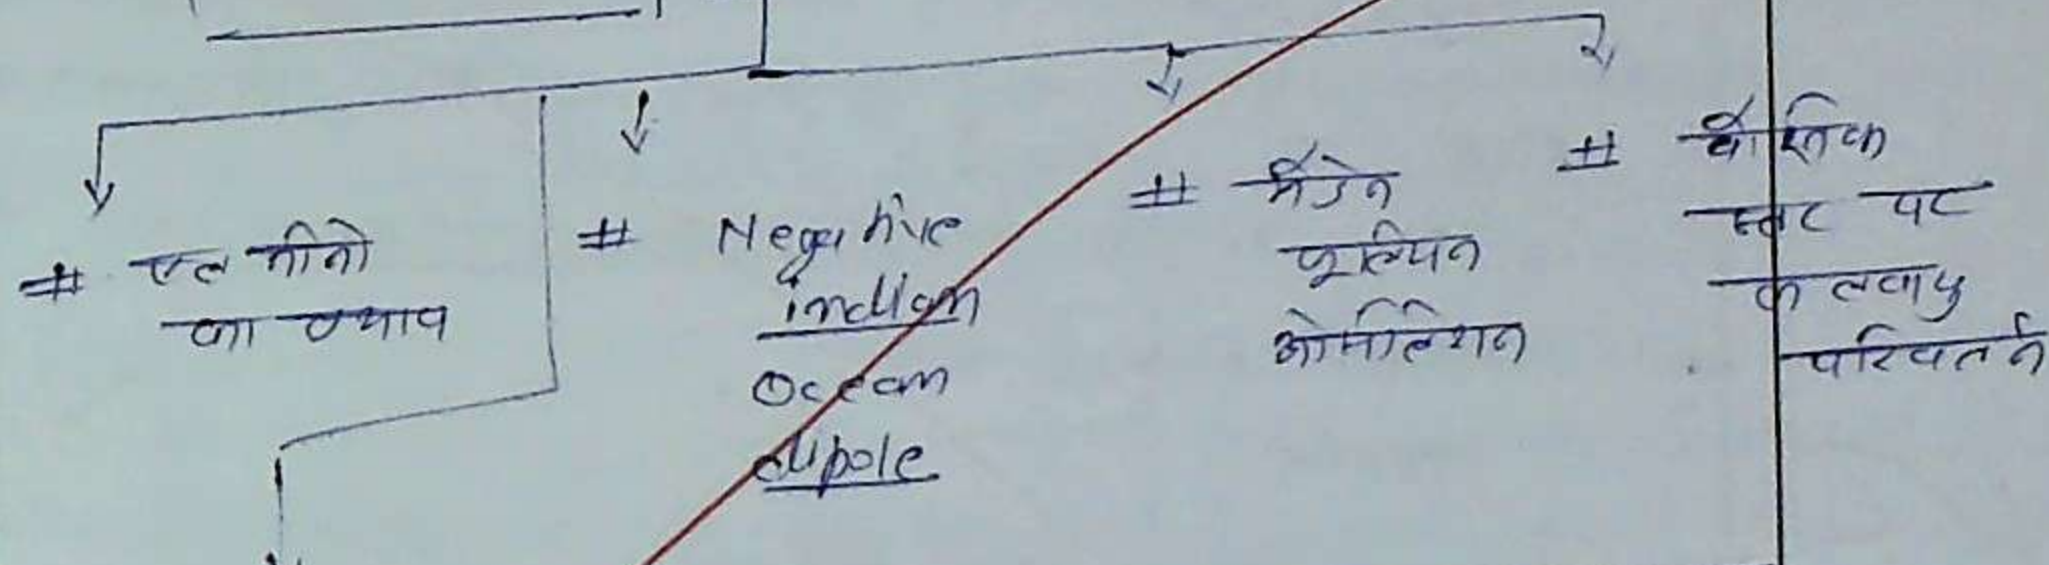 # एल नीनो
का प्रभाव
# Negative
indian
Ocean
dipole
# मैडेन
जूलियन
ओसिलेशन
# वैश्विक
स्तर पर
जलवायु
परिवर्तन